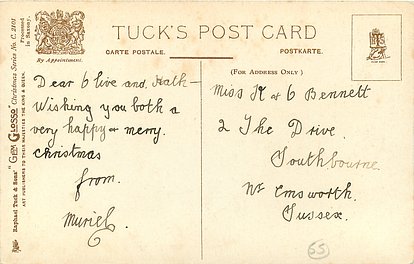 TUCK'S POST CARD
CARTE POSTALE.
POSTKARTE.
By Appointment.
(FOR ADDRESS ONLY)
Raphael Tuck & Sons' "GEM GLOSSO" Christmas Series No. C. 2101
ART PUBLISHERS TO THEIR MAJESTIES THE KING & QUEEN.
Processed in Saxony.
Dear Olive and Kath –
Wishing you both a
very happy & merry.
Christmas
from.
Muriel.
Miss K & O Bennett
2 The Drive.
Southbourne
Nr Emsworth.
Sussex.
55